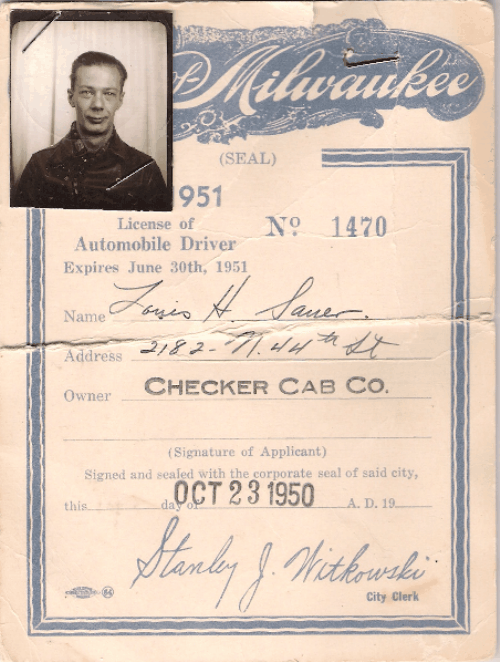 of Milwaukee
(SEAL)
951
License of
Automobile Driver
Nº 1470
Expires June 30th, 1951
Name Louis H. Sauer.
Address 2182-N. 44th St
Owner CHECKER CAB CO.
(Signature of Applicant)
Signed and sealed with the corporate seal of said city,
this day of OCT 23 1950 A. D. 19
Stanley J. Witkowski
City Clerk
64